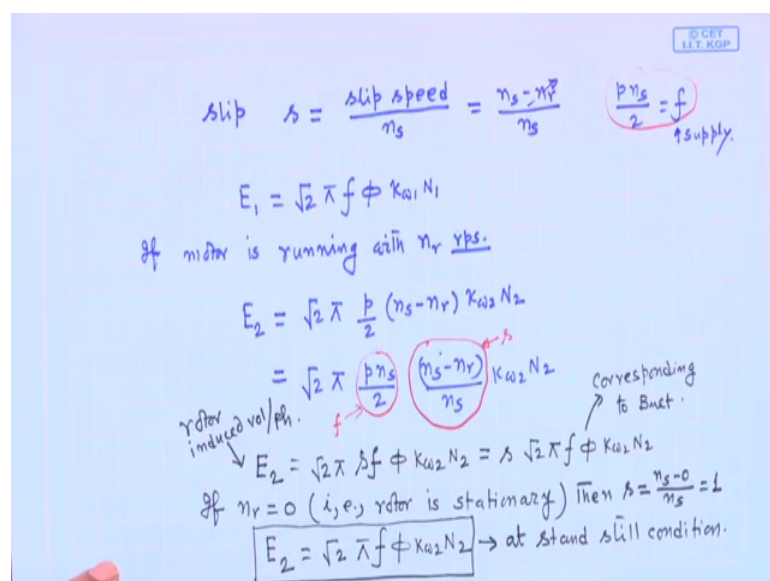 © CET
I.I.T. KGP
slip s = slip speed / n_s = (n_s - n_r) / n_s    p n_s / 2 = f
↑ supply.
E_1 = √2 π f φ K_ω1 N_1
If motor is running with n_r rps.
E_2 = √2 π p/2 (n_s - n_r) K_ω2 N_2
= √2 π (p n_s / 2) ((n_s - n_r) / n_s) K_ω2 N_2
f → ← s
rotor induced vol/ph.
corresponding to Bnet.
E_2 = √2 π s f φ K_ω2 N_2 = s √2 π f φ K_ω2 N_2
If n_r = 0 (i,e., rotor is stationary) Then s = (n_s - 0) / n_s = 1
E_2 = √2 π f φ K_ω2 N_2 → at stand still condition.